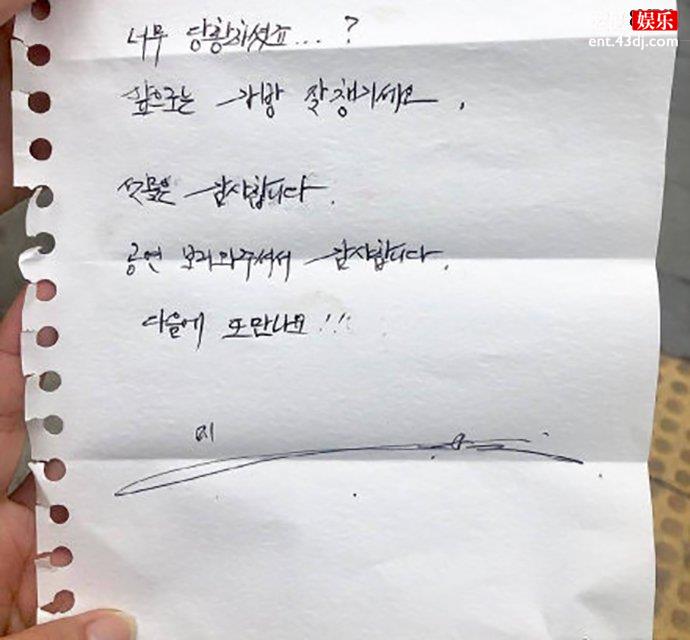 娱乐
ent.43dj.com
너무 당황하셨죠...?
앞으로는 가방 잘 챙기세요.
선물은 감사합니다.
공연 보러와주셔서 감사합니다.
다음에 또만나요!!!